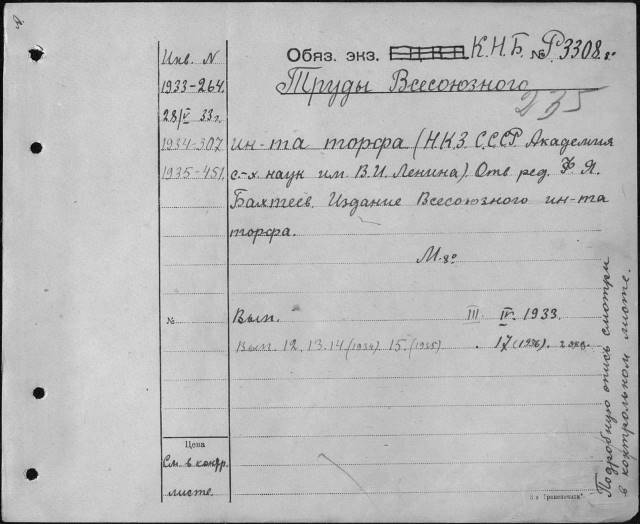 Инв. N
1933-264.
28/V 33 г.
1934-307
1935-451.
Обяз. экз. К.Н.Б. № Р3308
Труды Всесоюзного
235
ин-та торфа (НКЗ СССР Академия
с-х наук им. В.И. Ленина) Отв ред. Я.
Бахтеев. Издание Всесоюзного ин-та
торфа.
М. 8°
№ Вып. III. IV. 1933.
Вып. 12. 13. 14 (1934). 15. (1935) . 17 (1936). 2 экз.
Цена
См. в контр.
листе.
Подробную опись смотри
в контрольном листе.